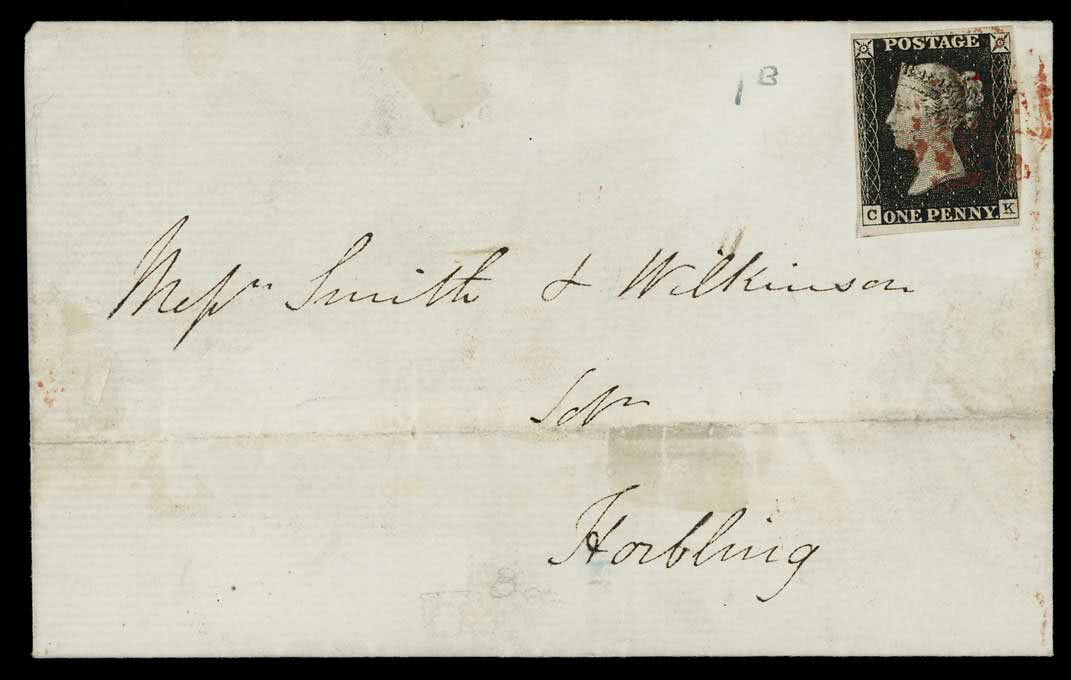 1 B
POSTAGE
C ONE PENNY. K
Messrs Smith & Wilkinson
Solrs
Horbling